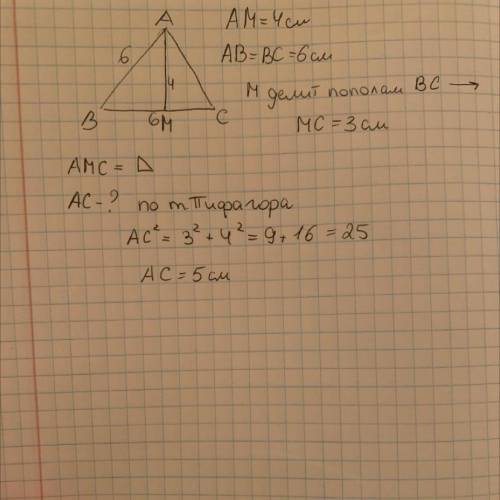 A
6
4
B
6
M
C
AM = 4 см
AB = BC = 6 см
M делит пополам BC →
MC = 3 см
AMC = ◺
AC - ? по т.Пифагора
AC² = 3² + 4² = 9 + 16 = 25
AC = 5 см